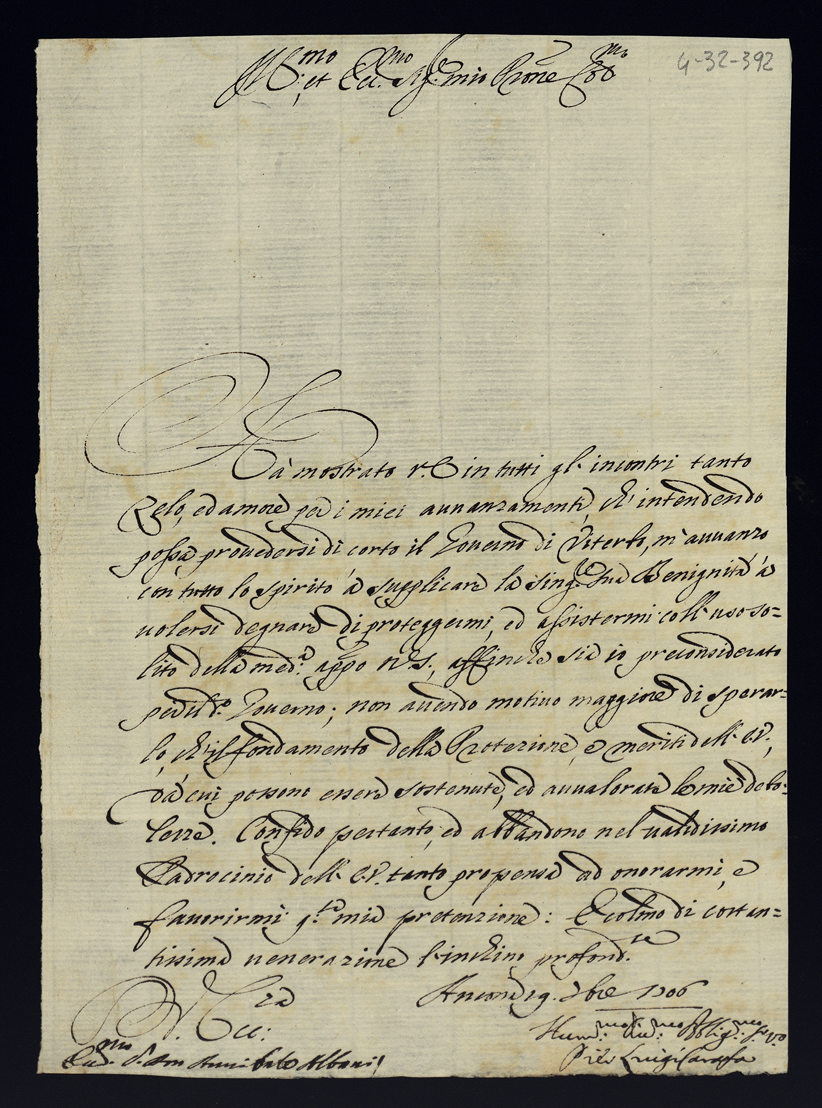 4-32-392
Ill.mo et Ecc.mo Sig.r mio Prone Col.mo
Hà mostrato V.E. in tutti gl'incontri tanto
Zelo, ed amore per i miei avvanzamenti, ch'intendendo
possa provedersi di corto il Governo di Viterbo, m'avvanzo
con tutto lo spirito à supplicare la sing.re Sua Benignità à
volersi degnare di proteggermi, ed assistermi coll'uso so-
lito della med.a appo N.S., affinche sia io preconsiderato
per il d.o Governo; non avendo motivo maggiore di sperar-
lo, ch'il fondamento della Protezione, e meriti dell'E.V.,
dà cui possono essere sostenute, ed avvalorate le mie debo-
lezze. Confido pertanto, ed abbandono nel validissimo
Padrocinio dell'E.V. tanto propensa ad onorarmi, e
favorirmi q.ta mia pretenzione: E colmo di costan-
tissima venerazione l'inchino profond.te
D. V. Ecc.za
Ancona 19. Xbre 1706
Hum.mo Dev.mo Obblig.mo Se.vo
Pier Luigi Carafa
Ecc.mo S. Don Annibale Albani